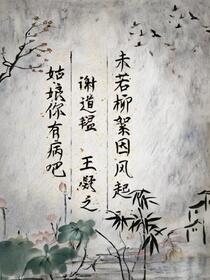 未若柳絮因风起
谢道韫 王凝之
姑娘你有病吧